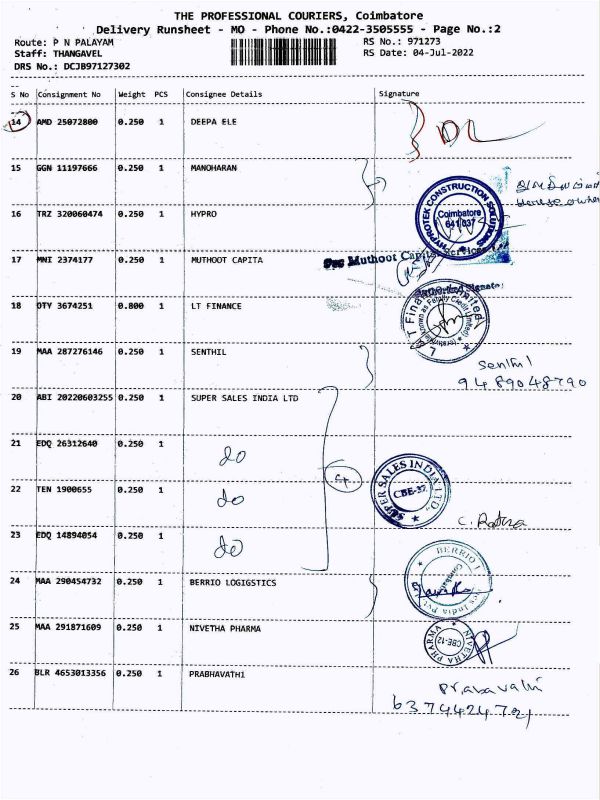 THE PROFESSIONAL COURIERS, Coimbatore
Delivery Runsheet - MO - Phone No.:0422-3505555 - Page No.:2
Route: P N PALAYAM
RS No.: 971273
Staff: THANGAVEL
RS Date: 04-Jul-2022
DRS No.: DCJB97127302
S No Consignment No Weight PCS Consignee Details Signature
14 AMD 25072800 0.250 1 DEEPA ELE
15 GGN 11197666 0.250 1 MANOHARAN
HYPROTEK CONSTRUCTION SOLUTIONS
Coimbatore
641 037
16 TRZ 320060474 0.250 1 HYPRO
17 MNI 2374177 0.250 1 MUTHOOT CAPITA
Muthoot Capital Services
18 OTY 3674251 0.800 1 LT FINANCE
19 MAA 287276146 0.250 1 SENTHIL
Senthil
9489048790
20 ABI 20220603255 0.250 1 SUPER SALES INDIA LTD
21 EDQ 26312640 0.250 1 do
22 TEN 1900655 0.250 1 do
SUPER SALES INDIA LTD.
CBE-37
23 EDQ 14894054 0.250 1 do
24 MAA 290454732 0.250 1 BERRIO LOGIGSTICS
25 MAA 291871609 0.250 1 NIVETHA PHARMA
NIVETHA PHARMA
CBE-12
26 BLR 4653013356 0.250 1 PRABHAVATHI
Prabavathi
6374424721